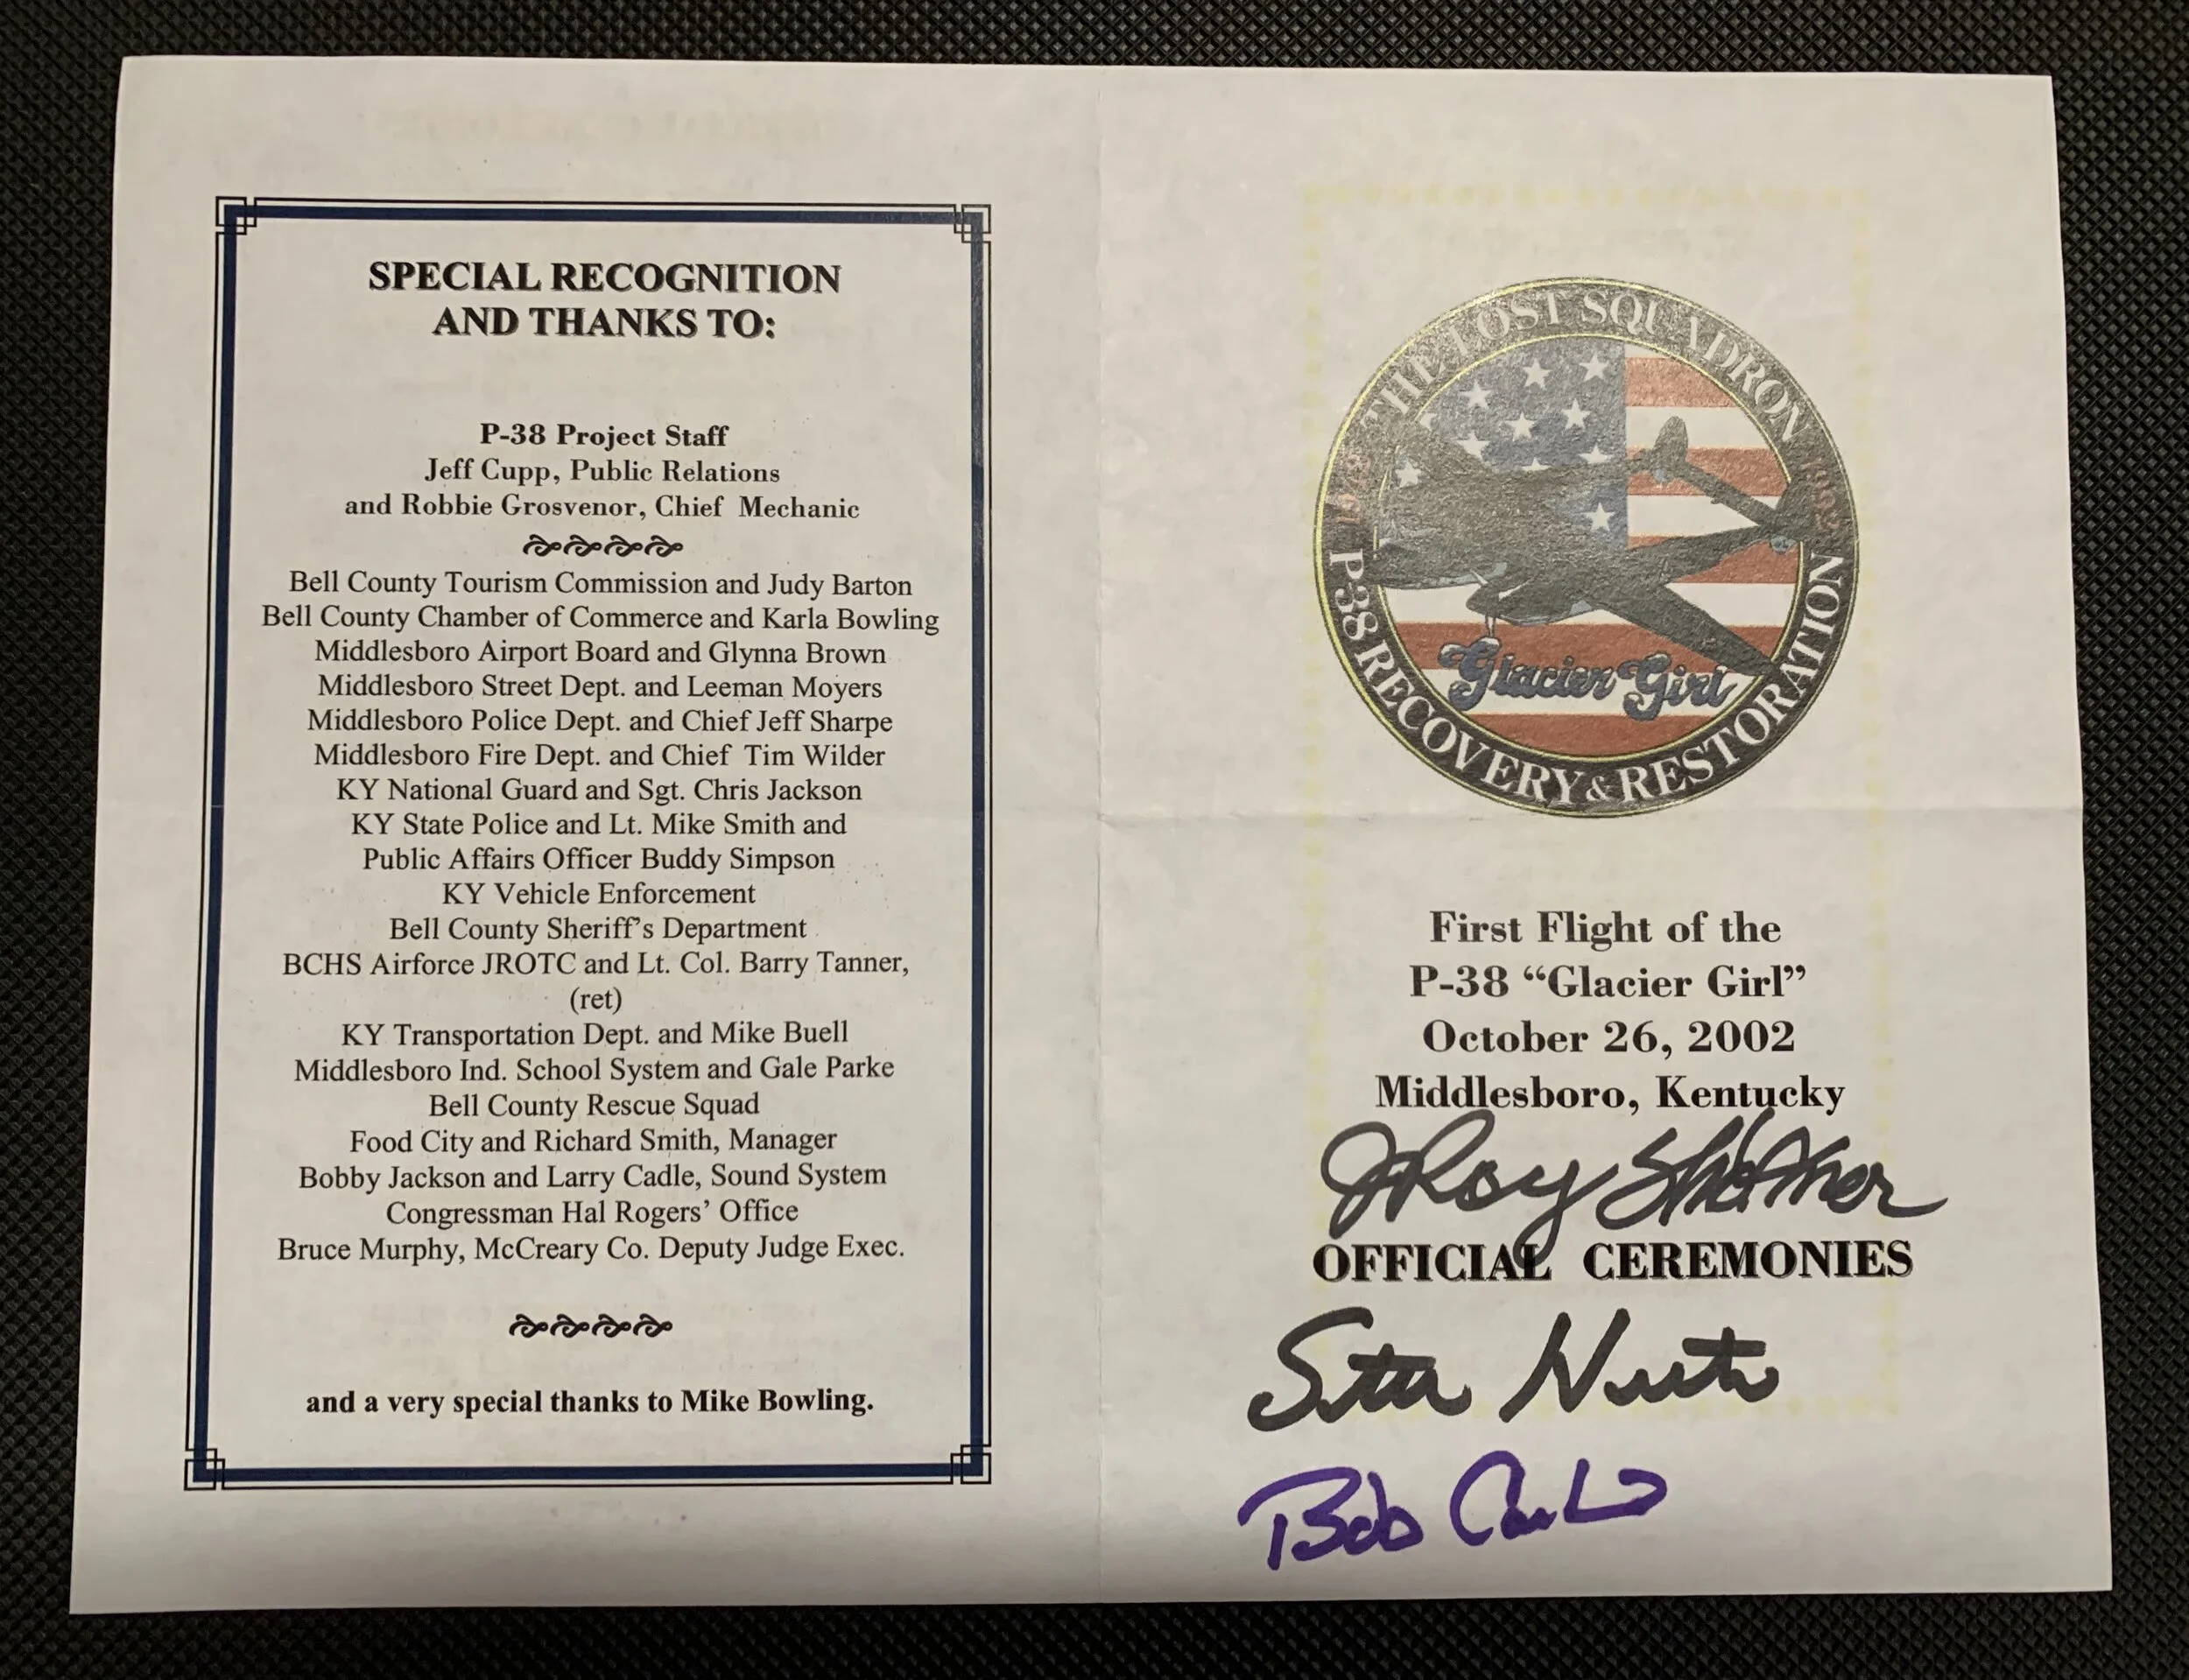 SPECIAL RECOGNITION
AND THANKS TO:
P-38 Project Staff
Jeff Cupp, Public Relations
and Robbie Grosvenor, Chief Mechanic
Bell County Tourism Commission and Judy Barton
Bell County Chamber of Commerce and Karla Bowling
Middlesboro Airport Board and Glynna Brown
Middlesboro Street Dept. and Leeman Moyers
Middlesboro Police Dept. and Chief Jeff Sharpe
Middlesboro Fire Dept. and Chief Tim Wilder
KY National Guard and Sgt. Chris Jackson
KY State Police and Lt. Mike Smith and
Public Affairs Officer Buddy Simpson
KY Vehicle Enforcement
Bell County Sheriff's Department
BCHS Airforce JROTC and Lt. Col. Barry Tanner,
(ret)
KY Transportation Dept. and Mike Buell
Middlesboro Ind. School System and Gale Parke
Bell County Rescue Squad
Food City and Richard Smith, Manager
Bobby Jackson and Larry Cadle, Sound System
Congressman Hal Rogers' Office
Bruce Murphy, McCreary Co. Deputy Judge Exec.
and a very special thanks to Mike Bowling.
THE LOST SQUADRON
1942 1992
Glacier Girl
P-38 RECOVERY & RESTORATION
First Flight of the
P-38 “Glacier Girl”
October 26, 2002
Middlesboro, Kentucky
Roy
OFFICIAL CEREMONIES
Bob